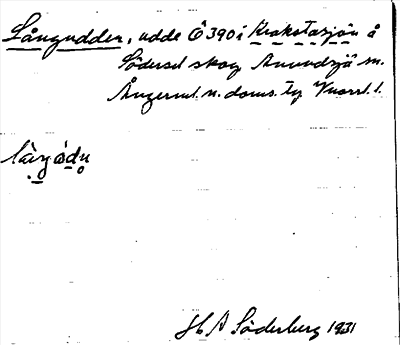 Långudden, udde Ö 390 i Krakstasjön å
Södersel skog Anundsjö sn.
Ångerml. n. doms. tg Vnorrl. l.
làŋɡó̀dn
H A Söderberg 1931